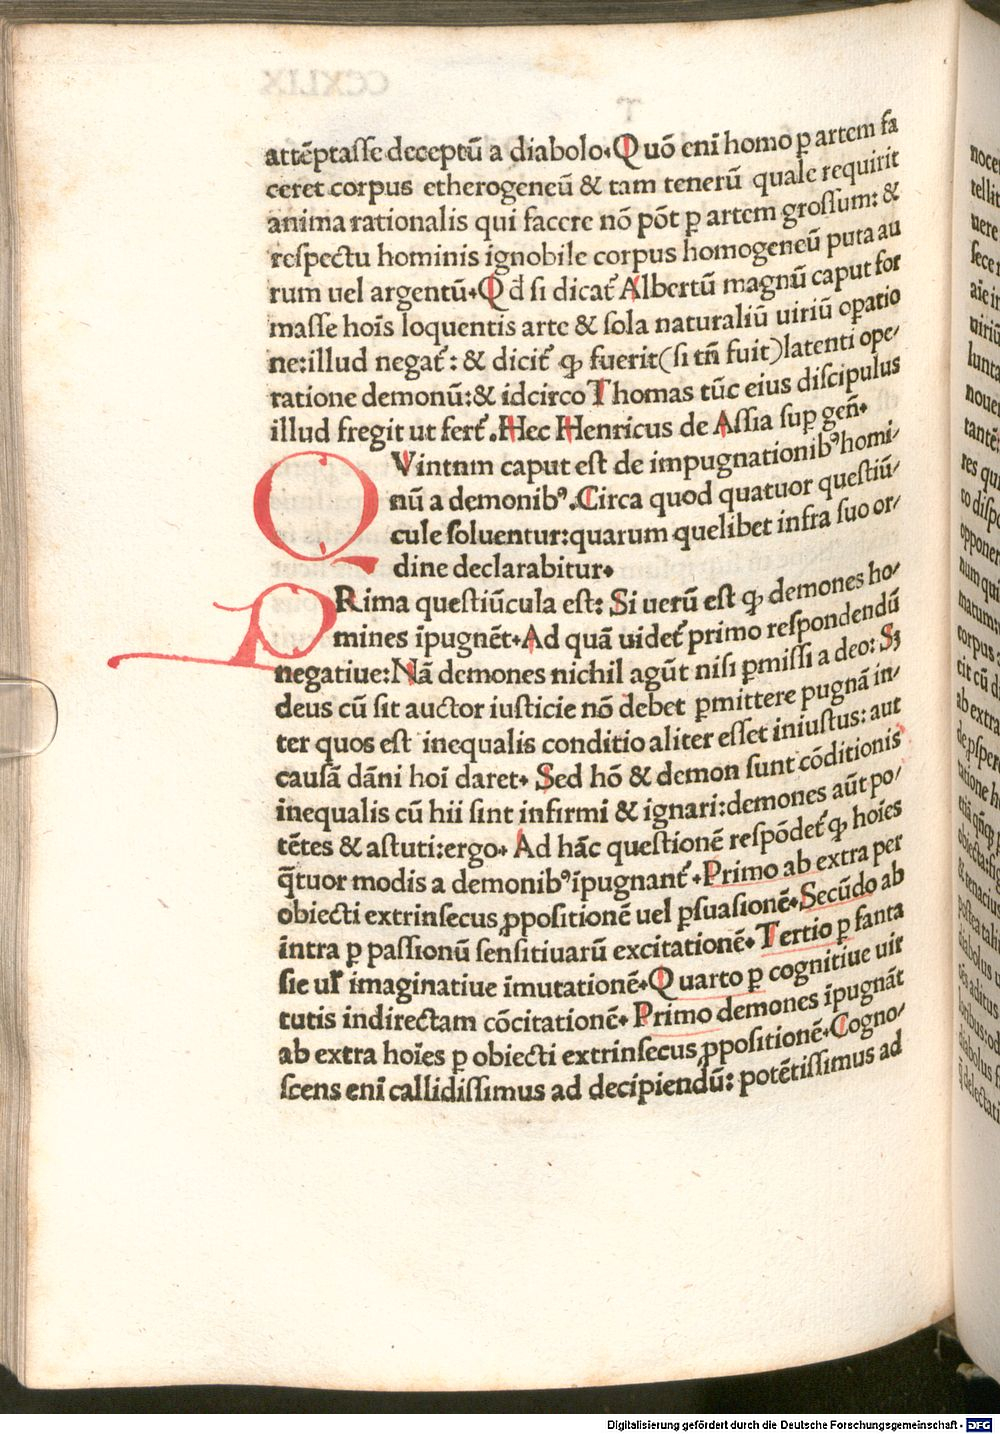 attẽptasse deceptũ a diabolo. Quõ eni̅ homo ꝑ artem fa
ceret corpus etherogeneũ & tam tenerũ quale requirit
anima rationalis qui facere nõ põt ꝑ artem grossum: &
respectu hominis ignobile corpus homogeneũ puta au
rum uel argentũ. Q d̅ si dicat᷑ Albertũ magnũ caput for
masse hoi̅s loquentis arte & sola naturaliũ uiriũ oꝑatio
ne: illud negat᷑: & dicit᷑ ꝙ fuerit (si tñ fuit) latenti ope/
ratione demonũ: & idcirco Thomas tũc eius discipulus
illud fregit ut fert᷑. Hec Henricus de Assia suꝑ geñ.
QVintum caput est de impugnationibꝰ homi/
nũ a demonibꝰ. Circa quod quatuor questiũ/
cule soluentur: quarum quelibet infra suo or/
dine declarabitur.
PRima questiũcula est: Si uerũ est ꝙ demones ho/
mines i̅pugnẽt. Ad quã uidet᷑ primo respondendũ
negatiue: Nã demones nichil agũt nisi ꝑmissi a deo: Sꝫ
deus cũ sit auctor iusticie nõ debet ꝑmittere pugnã in/
ter quos est inequalis conditio aliter esset iniustus: aut
causã dãni hoi̅ daret. Sed hõ & demon sunt cõditionis
inequalis cũ hii sint infirmi & ignari: demones aũt po/
tẽtes & astuti: ergo. Ad hãc questionẽ respõdet᷑ ꝙ hoi̅es
q̅tuor modis a demonibꝰ i̅pugnant᷑. Primo ab extra per
obiecti extrinsecus ꝓpositionẽ uel ꝑsuasionẽ. Secũdo ab
intra ꝑ passionũ sensitiuarũ excitationẽ. Tertio ꝑ fanta
sie ul̅ imaginatiue i̅mutationẽ. Quarto ꝑ cognitiue uir
tutis indirectam cõcitationẽ. Primo demones i̅pugnãt
ab extra hoi̅es ꝑ obiecti extrinsecus ꝓpositionẽ. Cogno/
scens eni̅ callidissimus ad decipiendũ: potẽtissimus ad
Digitalisierung gefördert durch die Deutsche Forschungsgemeinschaft - DFG